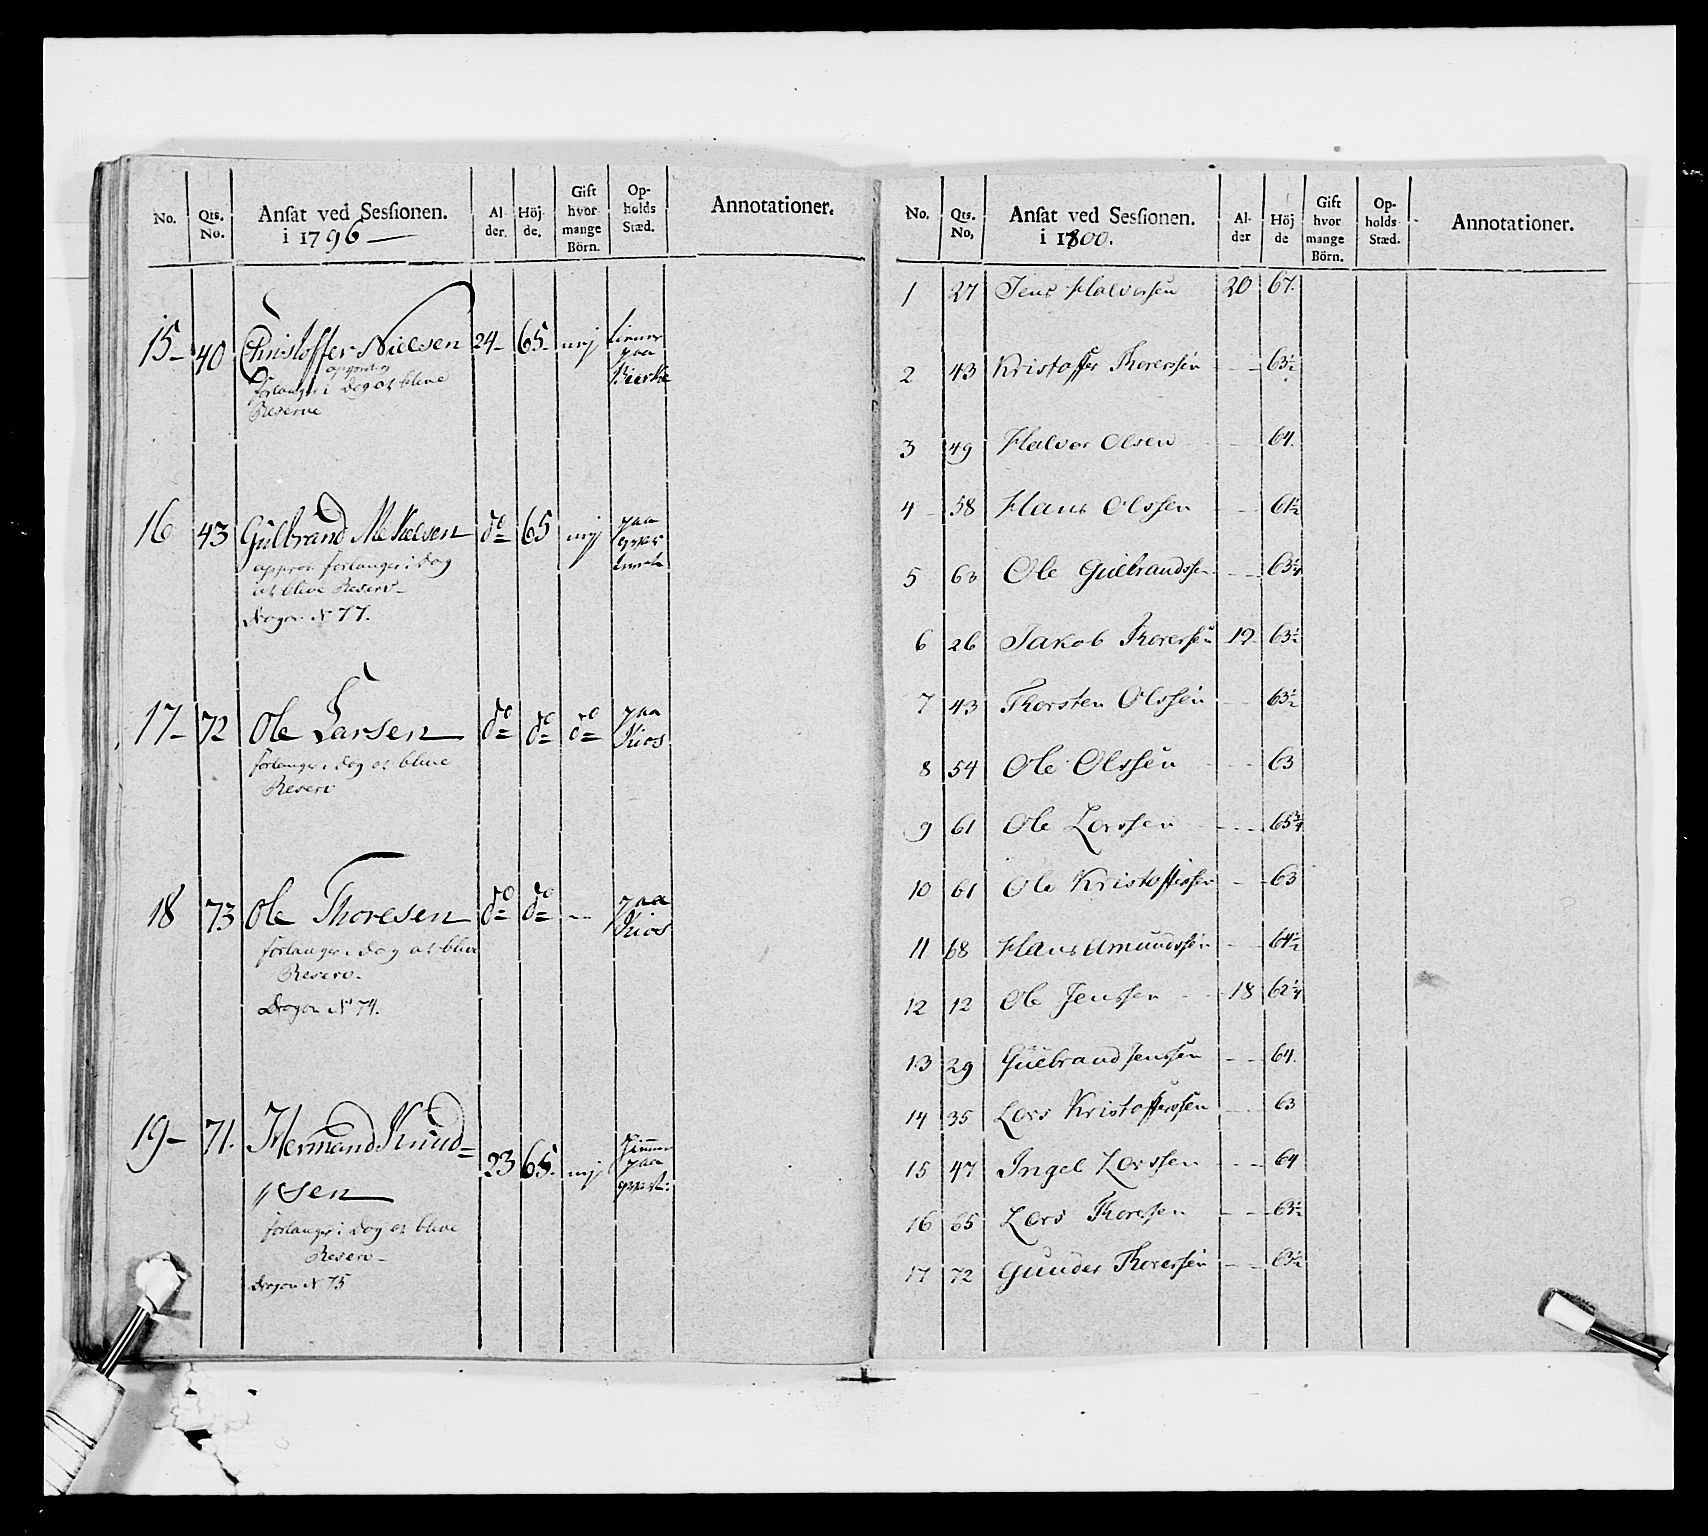 No. Qts. No. Ansat ved Sessionen. i 1796 — Al- der. Höj- de. Gift hvor mange Börn. Op- holds Stæd. Annotationer.
15 – 40 Christoffer Nielsen 24 – 65 – nej paa
forlanger i Dag at blive
Reserve
16 43 Gulbrand Mekelsen do 65 nej paa
forlanger i Dag
at blive Reserv –
Dragon N 77.
17 – 72 Ole Larsen do do do paa Kios
forlanger i Dag at blive
Reserv
18 73 Ole Thoresen do do — paa Kios
forlanger i Dag at blive
Reserv –
Dragon N 74.
19 – 71. Hermand Knud=
sen 23 65. nej paa
forlanger i Dag at blive
Reserv –
Dragon N 75
No. Qts. No, Ansat ved Sessionen. i 1800. Al- der Höj de Gift hvor mange Börn. Op- holds- Stæd. Annotationer.
1 27 Jens Halvorsen 20 67.
2 43 Kristoffer Thorersen — 63½
3 49 Halvor Olsen — 64.
4 58 Hans Olssen — 61½
5 63 Ole Gulbrandssen — 63¼
6 26 Jakob Thorerssen 19 63½
7 43 Thorsten Olssen — 63½
8 54 Ole Olssen — 63
9 61 Ole Lorssen — 65¾
10 61 Ole Kristofferssen — 63
11 68 Hans Amundssen — 64½
12 12 Ole Jenssen 18 62¼
13 29 Gulbrand Jenssen — 64.
14 35 Lars Kristofferssen — 63
15 47 Ingel Larssen — 64
16 65 Lars Thoresen — 63½
17 72 Gunder Thorerssen — 63½